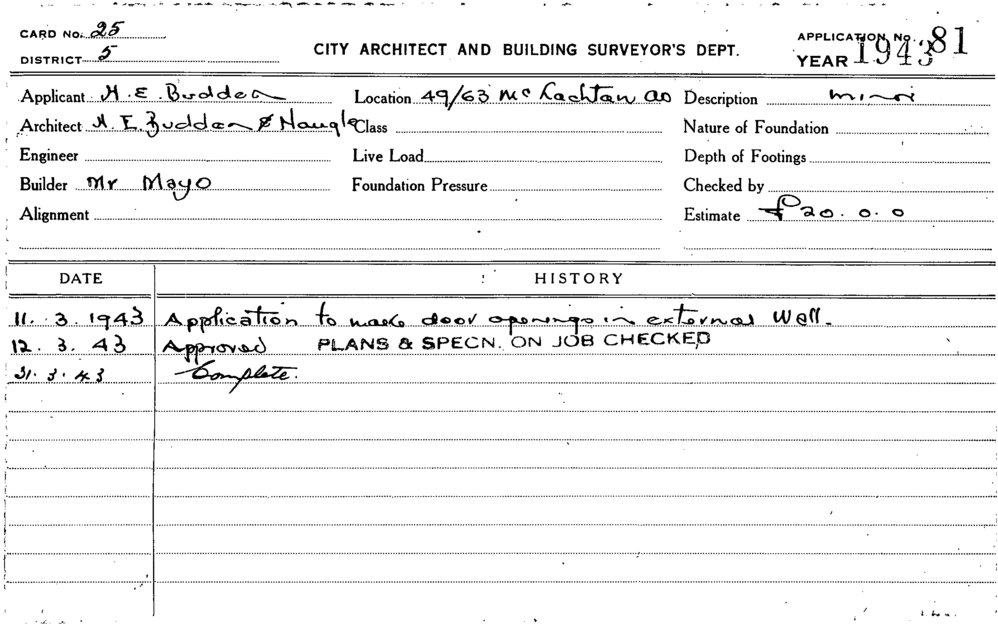 CARD No. 25
DISTRICT 5
CITY ARCHITECT AND BUILDING SURVEYOR'S DEPT.
APPLICATION No. 81
YEAR 1943
Applicant H. E. Budden Location 49/63 McLachlan av Description minor
Architect H. E. Budden & Nangle Class Nature of Foundation
Engineer Live Load Depth of Footings
Builder Mr Mayo Foundation Pressure Checked by
Alignment Estimate £20.0.0
DATE HISTORY
11. 3. 1943 Application to make door openings in external wall.
12. 3. 43 Approved PLANS & SPECN. ON JOB CHECKED
31. 3. 43 Complete.